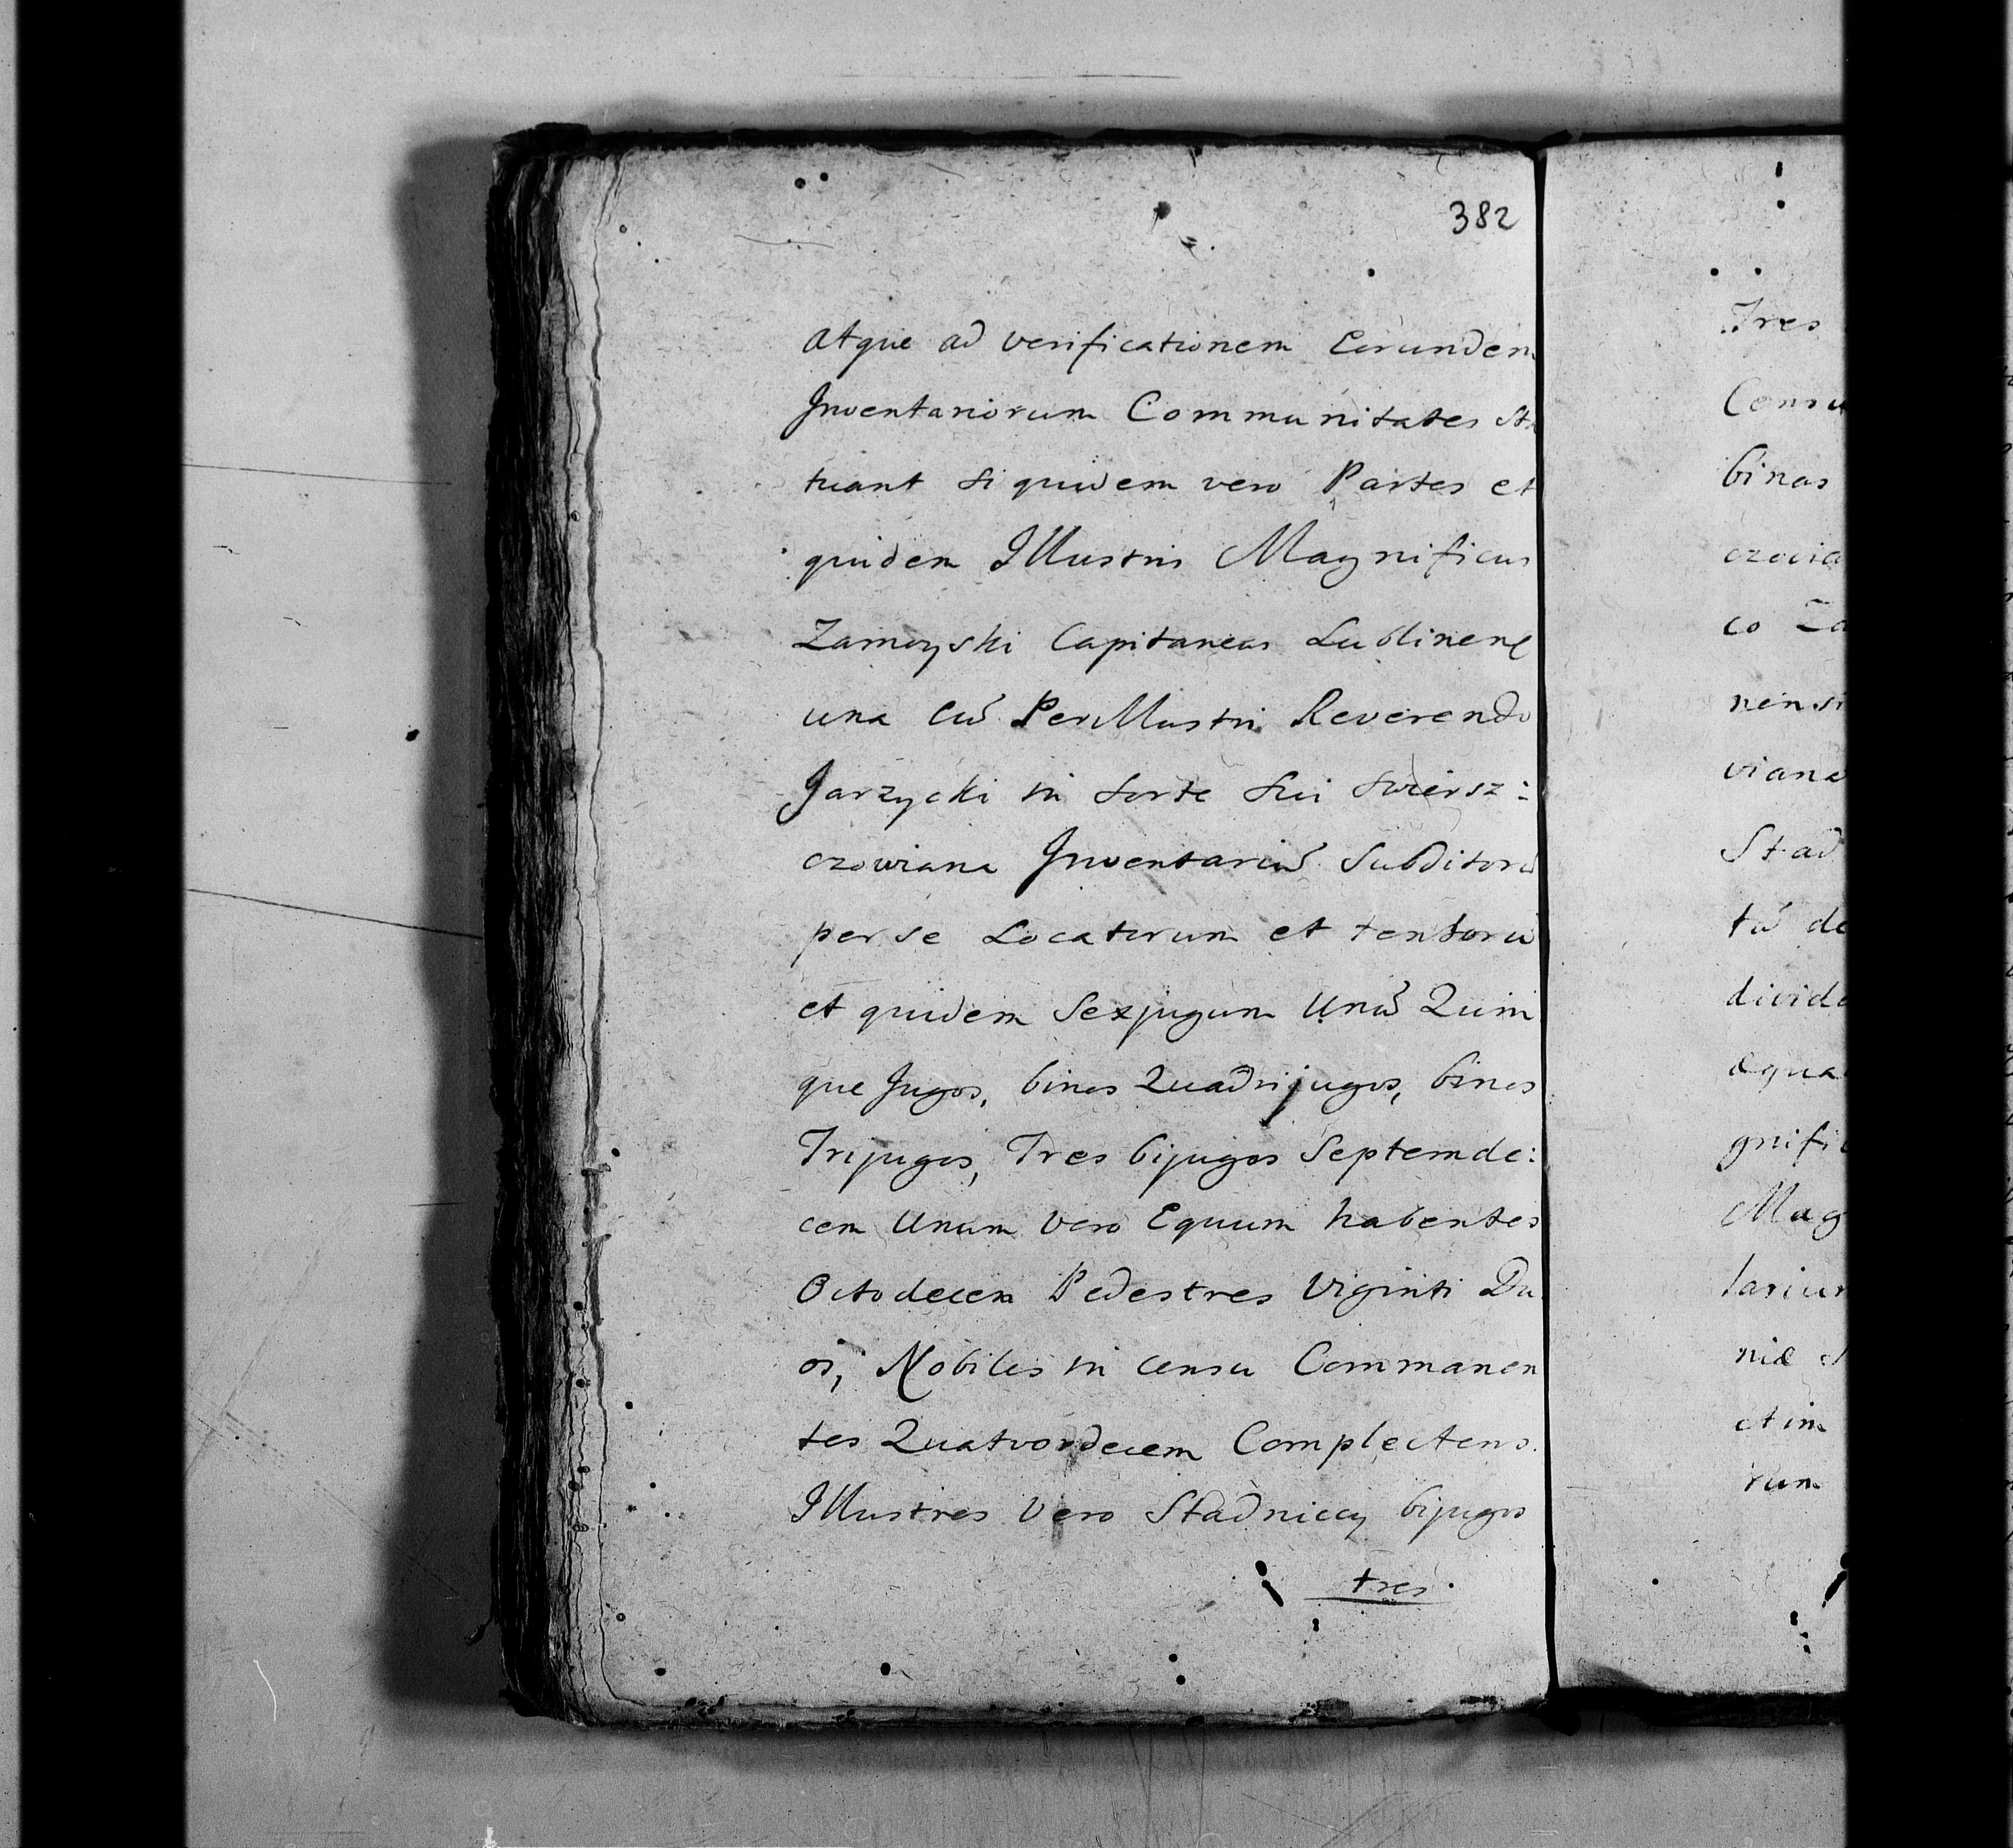 382
atque ad verificationem Eorundem
Inventariorum Communitates Sta
tuant siquidem vero Partes et
quidem Illustris Magnificus
Zamoyski Capitaneus Lublinens
una cũ Perillustri Reverendo
Jarzycki in sorte sui Swiersz:
czowiana Inventariũ Subditorũ
per se Locatorum et tentorũ
et quidem Sexjugum Unũ Quin
que Jugos, binos Quadrijugos, binos
Trijugos, Tres bijugos Septemde:
cem Unum vero Equum habentes
Octodecem Pedestres Viginti Du
os, Nobiles in censu Commanen
tes Quatuordecem Complectens.
Illustres Vero Stadniccy bijugos
tres.
Tres
Censu
binos
czovia
co Za
nensi
viana
Stad
tũ de
divide
æqua
gnific
Mag
lariur
niæ
et im
rum